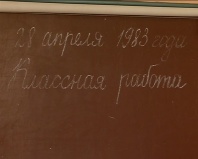 28 апреля 1983 года
Классная работа